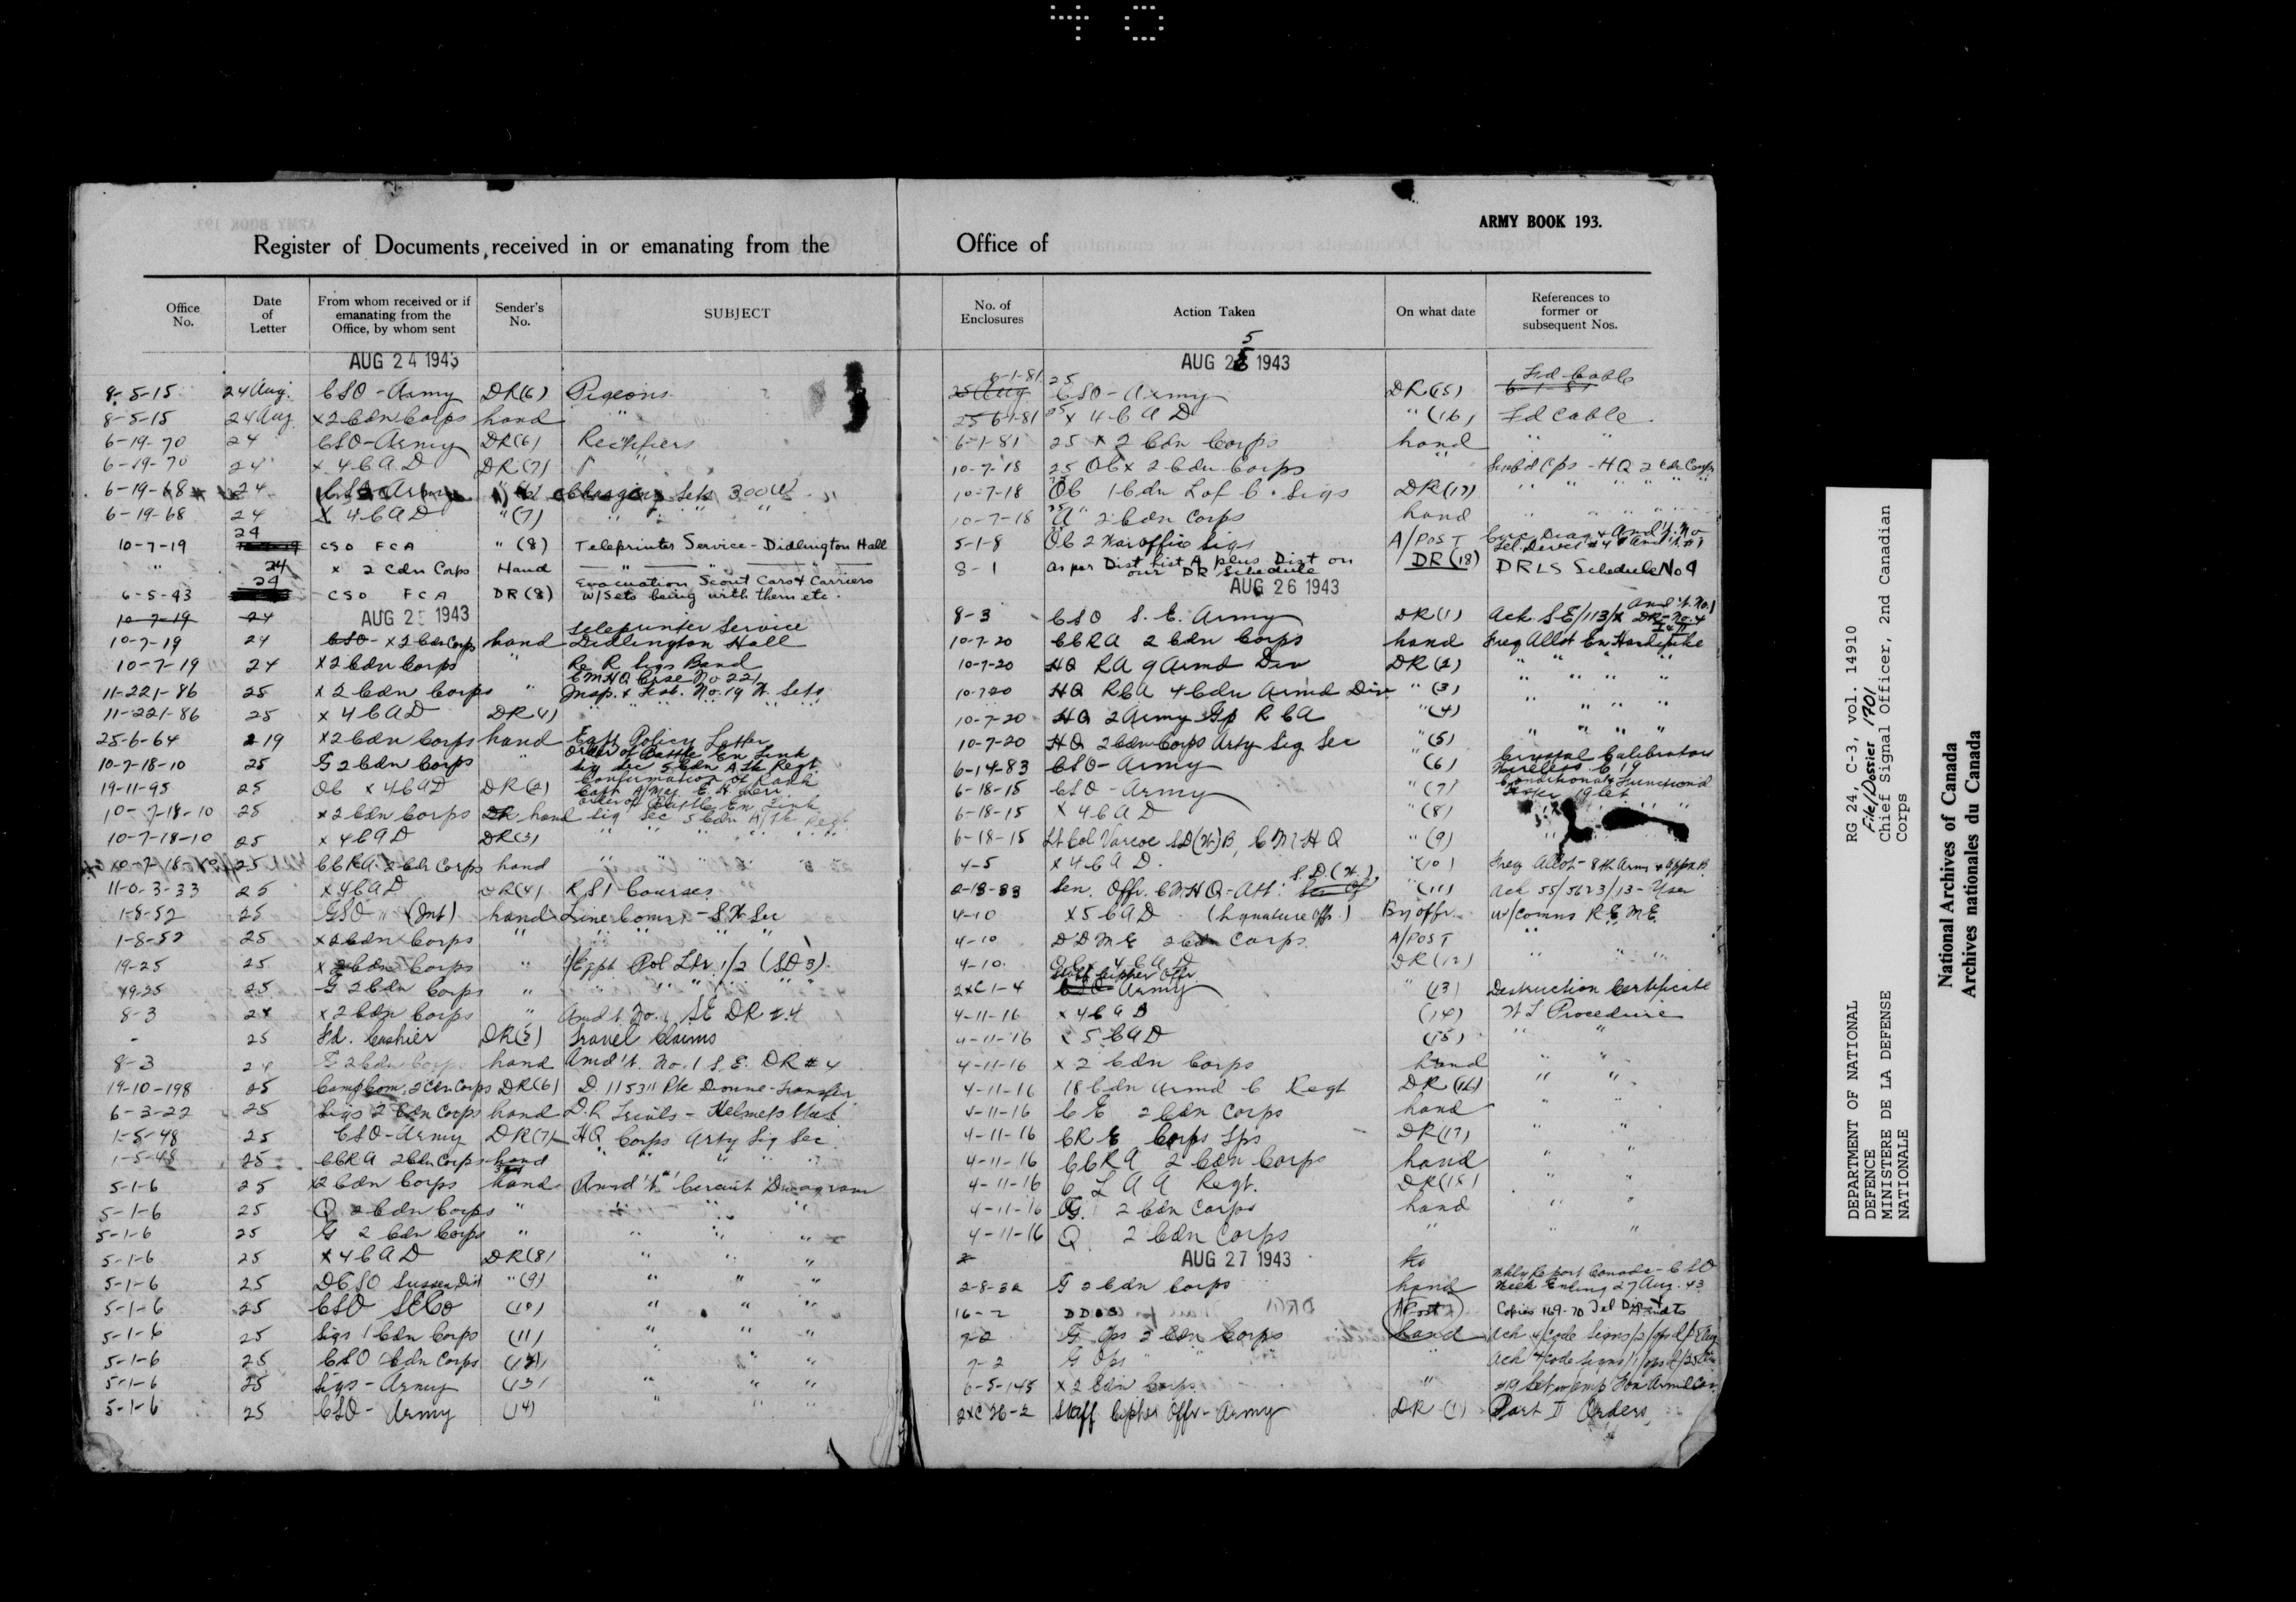 ARMY BOOK 193.
Register of Documents, received in or emanating from the
Office of
Office No. Date of Letter From whom received or if emanating from the Office, by whom sent Sender's No. SUBJECT
AUG 24 1943
8-5-15 24 Aug. CSO-Army DR(6) Pigeons
8-5-15 24 Aug x 2 Cdn Corps hand "
6-19-70 24 CSO-Army DR(6) Rectifiers
6-19-70 24 x 4 C A D DR(7) "
6-19-68 24 CSO Army Charging Sets 300 W
6-19-68 24 x 4 C A D "(7) " " "
10-7-19 24 CSO FCA "(8) Teleprinter Service - Didlington Hall
" 24 x 2 Cdn Corps Hand " " "
6-5-93 24 CSO FCA DR(8) Evacuation Scout Cars & Carriers w/sets being with them etc.
10-7-19 24 AUG 25 1943
10-7-19 24 CSO - x 2 Cdn Corps hand Teleprinter Service Didlington Hall
10-7-19 24 x 2 Cdn Corps " Re R Sigs Band
11-221-86 25 x 2 Cdn Corps " CMHQ Case No 221 Insp. & Test. No. 19 W. Sets
11-221-86 25 x 4 C A D DR(1) " " " "
25-6-64 219 x 2 Cdn Corps hand Eqpt Policy Letter
10-7-18-10 25 G 2 Cdn Corps " Order of Battle En Link Sig Sec 5 Cdn A Tk Regt
19-11-95 25 OC x 4 C A D DR(2) Confirmation of Rank Capt A/Maj. E H
10-7-18-10 25 x 2 Cdn Corps DR hand Order of Battle En Link Sig Sec 5 Cdn A/Tk Regt
10-7-18-10 25 x 4 C A D DR(3) " " " "
10-7-18-10 25 CCRA 2 Cdn Corps hand " " " "
11-0-3-33 25 x 4 C A D DR(4) R S I Courses
1-8-52 25 GSO " (Int) hand Line Comn - S W Sec
1-8-52 25 x 2 Cdn Corps " " " " "
19-25 25 x 2 Cdn Corps " Eqpt Pol Ltr 1/2 (SD 3)
19-25 25 G 2 Cdn Corps " " " " "
8-3 24 x 2 Cdn Corps " Amd't No. 1 SE DR #4
- 25 Fd. Cashier DR(5) Travel Claims
8-3 24 G 2 Cdn Corps hand Amd't. No. 1 S.E. DR #4
19-10-198 25 Camp Com. 2 Cdn Corps DR(6) D 115311 Pte Dionne - Transfer
6-3-22 25 Sigs 2 Cdn Corps hand D.R Trials - Helmets
1-5-48 25 CSO-Army DR(7) HQ Corps Arty Sig Sec
1-5-48 25 CCRA 2 Cdn Corps hand " " " "
5-1-6 25 x 2 Cdn Corps hand Amd't Circuit Diagram
5-1-6 25 Q 2 Cdn Corps " " " "
5-1-6 25 G 2 Cdn Corps " " " "
5-1-6 25 x 4 C A D DR(8) " " "
5-1-6 25 DCSO Sussex Dist "(9) " " "
5-1-6 25 CSO SECo (10) " " "
5-1-6 25 Sigs 1 Cdn Corps (11) " " "
5-1-6 25 CSO Cdn Corps (12) " " "
5-1-6 25 Sigs - Army (13) " " "
5-1-6 25 CSO - Army (14) " " "
No. of Enclosures Action Taken On what date References to former or subsequent Nos.
5
AUG 26 1943
25 Aug 6-1-81 25 CSO - Army DR(15) 6-1-81 Fd Cable
25 6-1-81 25 x 4 C A D "(16) Fd Cable
6-1-81 25 x 2 Cdn Corps hand " "
10-7-18 25 OC x 2 Cdn Corps " Cps - HQ 2 Cdn Corps
10-7-18 25 OC 1 Cdn L of C. Sigs DR(17) " " " " " "
10-7-18 25 "A" 2 Cdn Corps hand " " " "
5-1-8 OC 2 War office Sigs A/POST Circ Diag & Amd't. No Tel Direct #4 & Amd't #1
8-1 as per Dist List A plus Dist on our DR Schedule DR(18) DRLS Schedule No 9
AUG 26 1943
8-3 CSO S. E. Army DR(1) Ack SE/113/ DR-No. 4 Amd't. No. 1
10-7-20 CCRA 2 Cdn Corps hand Freq Allot Ex Hardtake
10-7-20 HQ RA 9 Armd Div DR(2) " " " "
10-7-20 HQ RCA 4 Cdn Armd Div "(3) " " " "
10-7-20 HQ 2 Army Gp RCA "(4) " " " "
10-7-20 HQ 2 Cdn Corps Arty Sig Sec "(5) " " " "
6-14-83 CSO-Army "(6) Crystal Calibrators Wireless C 19
6-18-15 CSO-Army "(7) Conditional & Functional 19 Set
6-18-15 x 4 C A D "(8) " "
6-18-15 Lt Col Varcoe SD(W)B, CMHQ "(9)
4-5 x 4 C A D. "(10) Freq Allot - 8th Army & Appx B
2-18-33 Sen. Offr. CMHQ - Att: S.D.(W.) "(11) Ack 55/5623/13 -
4-10 x 5 C A D (Signature offr.) By offr. w/Comns R.E.M.E.
4-10 DDME 2 Cdn Corps A/POST " "
4-10 OC x 4 C A D DR(12) " " "
2XC 1-4 Staff Cipher Offr Army "(13) Destruction Certificate
4-11-16 x 4 C A D (14) W T Procedure
4-11-16 x 5 C A D (15) " "
4-11-16 x 2 Cdn Corps hand " "
4-11-16 18 Cdn Armd C Regt DR(16) " "
4-11-16 C E 2 Cdn Corps hand " "
4-11-16 CRE Corps Tps DR(17) " "
4-11-16 CCRA 2 Cdn Corps hand " "
4-11-16 6 L A A Regt. DR(18) " "
4-11-16 G. 2 Cdn Corps hand " "
4-11-16 Q 2 Cdn Corps " " "
AUG 27 1943
2-8-32 G 2 Cdn Corps hand Wkly Report Canada - CSO Week Ending 27 Aug. 43
16-2 DDOS A/Post Copies 169-70 Tel Direct Amdts
7-2 G Ops 2 Cdn Corps hand Ack 4/Code Signs/2/ops d/
7-2 G Ops " " " Ack 4/Code Signs/1/ops d/25
6-5-145 x 2 Cdn Corps " #19 Set
2XC 26-2 Staff Cipher Offr - Army DR(1) Part II Orders
DEPARTMENT OF NATIONAL DEFENCE
MINISTERE DE LA DEFENSE NATIONALE
RG 24, C-3, vol. 14910
File/Dossier 1701
Chief Signal Officer, 2nd Canadian Corps
National Archives of Canada
Archives nationales du Canada